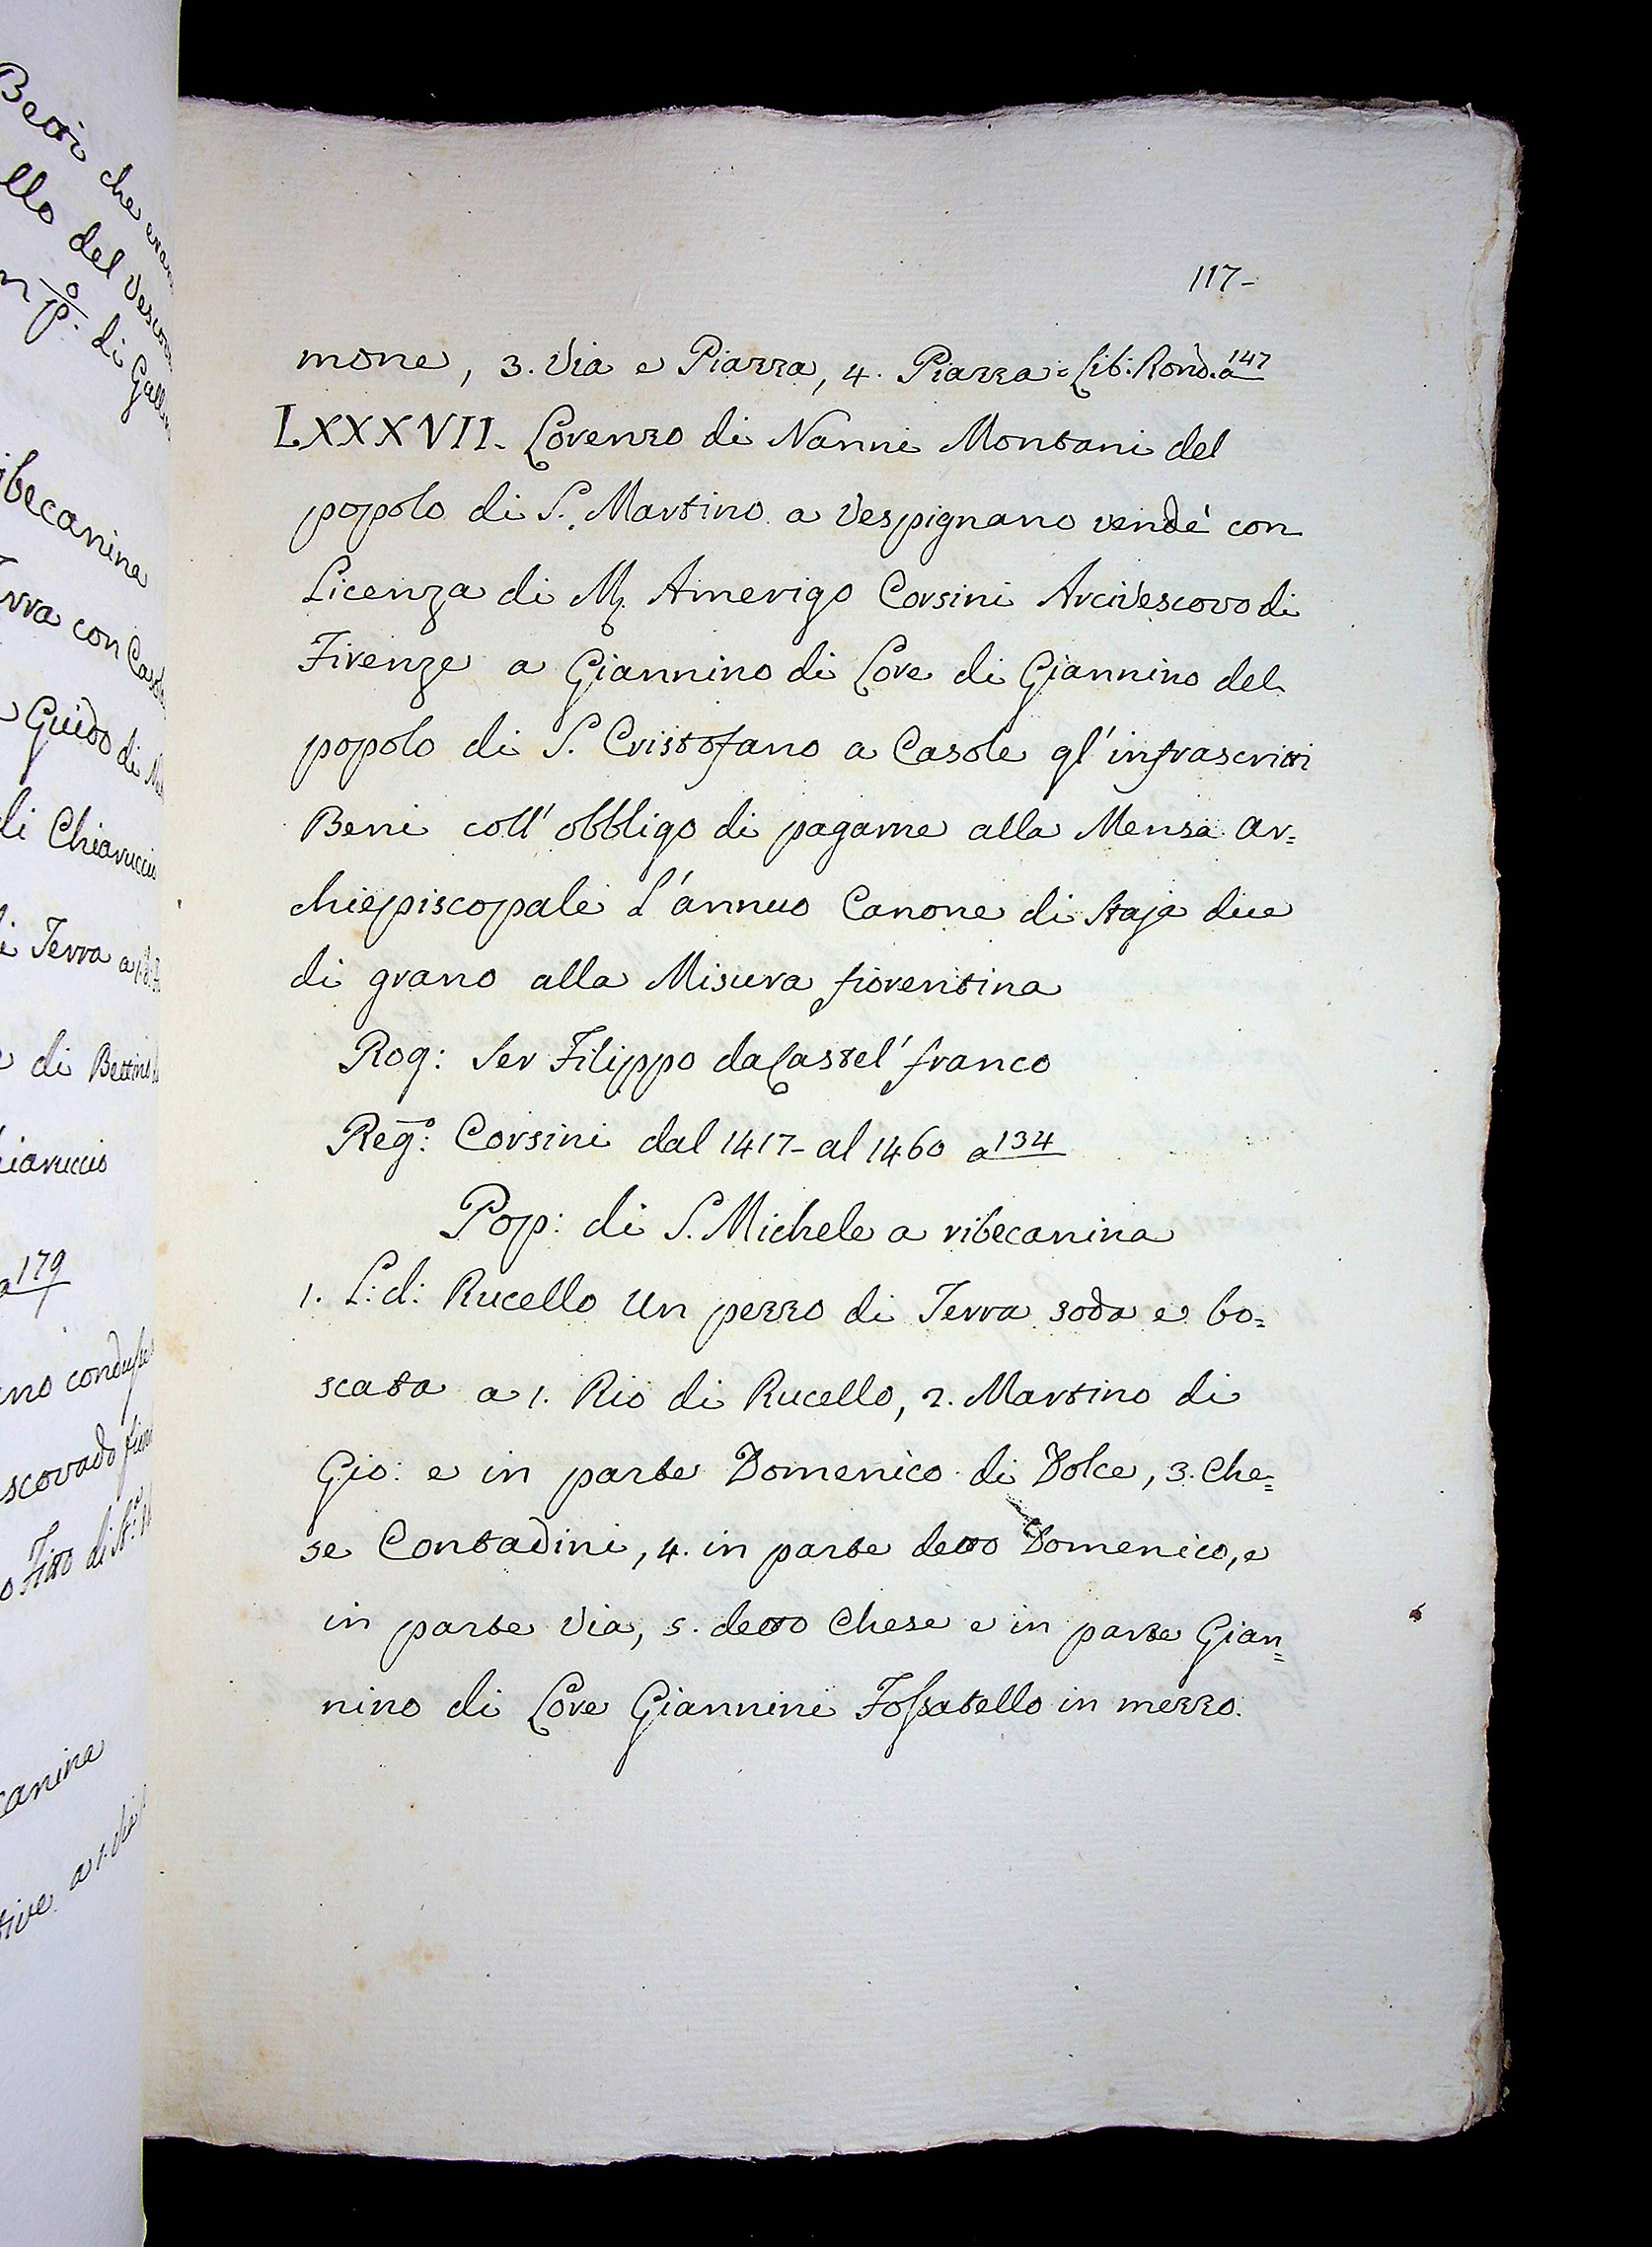 Betti che eran
llo del Vescov
n P.o di Gall
ibecanina
rra con Casol
Guido di
di Chiaruccio
i Terra a 1.
di Bettino
hiaruccio
a 179
no conduss
scovado fior
o Fitto di
canina
tive a 1.
117-
mone, 3. Via e Piazza, 4. Piazza: Lib: Rond. a 147
LXXXVII. Lorenzo di Nanni Montani del
popolo di S. Martino a Vespignano vendè con
Licenza di M. Amerigo Corsini Arcivescovo di
Firenze a Giannino di Lore di Giannino del
popolo di S. Cristofano a Casole gl'infrascritti
Beni coll' obbligo di pagarne alla Mensa Ar=
chiepiscopale L'annuo Canone di Staja due
di grano alla Misura fiorentina
Rog: Ser Filippo da Castel' franco
Reg.o: Corsini dal 1417- al 1460 a 134
Pop: di S. Michele a ribecanina
1. L: d: Rucello Un pezzo di Terra soda e bo=
scata a 1. Rio di Rucello, 2. Martino di
Gio: e in parte Domenico di Dolce, 3. Che=
se Contadini, 4. in parte detto Domenico, e
in parte Via, 5. detto Chese e in parte Gian=
nino di Lore Giannini Fossatello in mezzo.